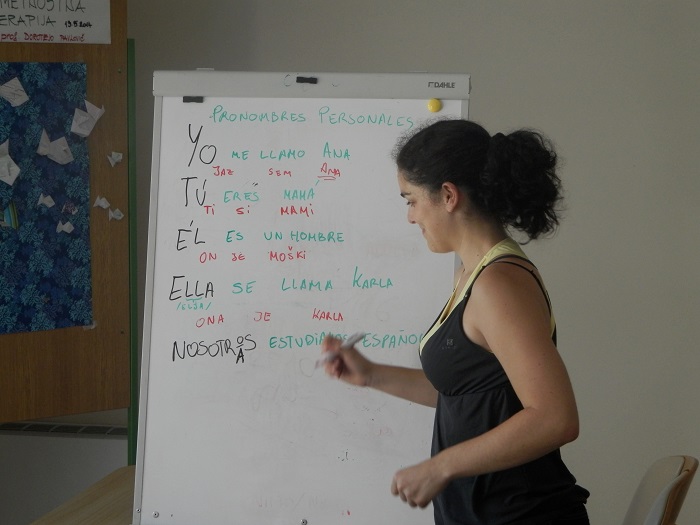 METNOSTNA
ERAPIJA 13.5.2014
DAHLE
PRONOMBRES PERSONALES
YO ME LLAMO ANA
JAZ SEM ANA
TÚ ERES MAMÁ
TI SI MAMI
ÉL ES UN HOMBRE
ON JE MOŠKI
ELLA SE LLAMA KARLA
/ELJA/
ONA JE KARLA
NOSOTROS ESTUDIAMOS ESPAÑOL
A